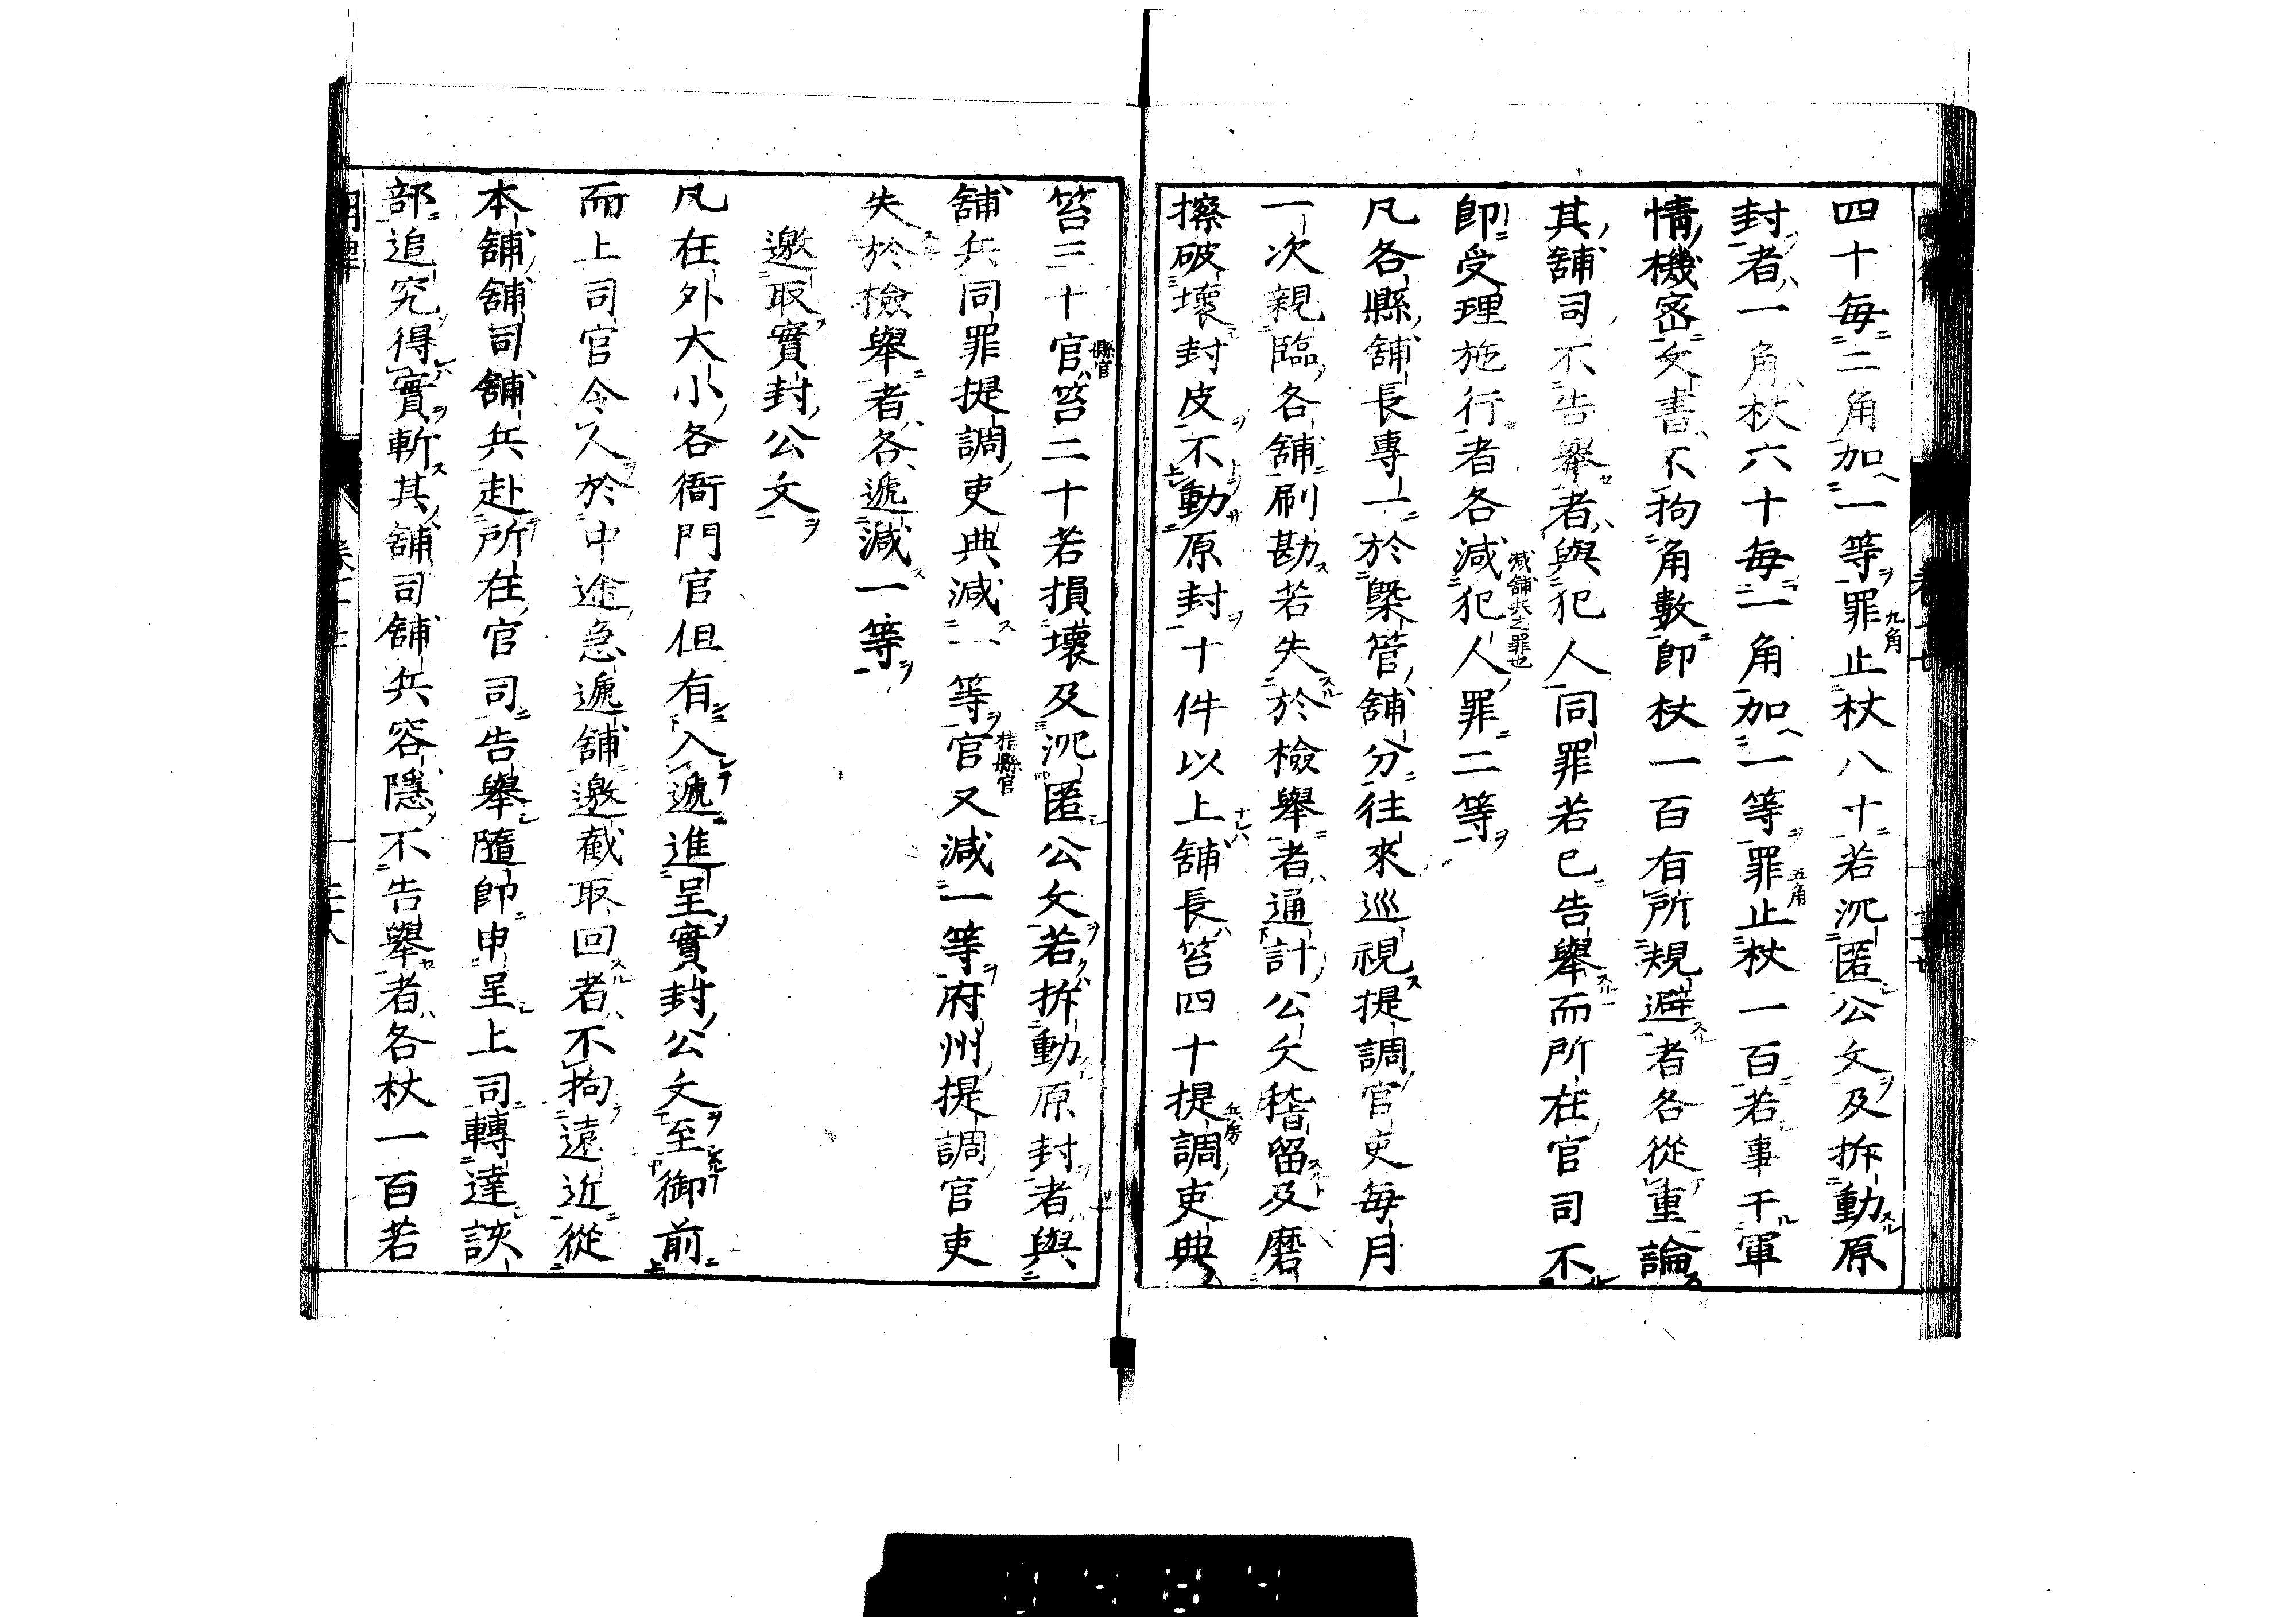 四十毎二角加一等罪止杖八十若沉匿公文及拆動原
封者一角杖六十毎一角加一等罪止杖一百若事干軍
情機密文書不拘角數即杖一百有所規避者各從重論
其舖司不告舉者與犯人同罪若已告舉而所在官司不
即受理施行者各減犯人罪二等
凡各縣舖長專一於槩管舖分往來巡視提調官吏毎月
一次親臨各舖刷勘若失於檢舉者通計公文稽留及磨
擦破壞封皮不動原封十件以上舖長笞四十提調吏典
笞三十官笞二十若損壞及沉匿公文若拆動原封者與
舖兵同罪提調吏典減一等官又減一等府州提調官吏
失於檢舉者各遞減一等
邀取實封公文
凡在外大小各衙門官但有入遞進呈實封公文至御前
而上司官令人於中途急遞舖邀截取回者不拘遠近從
本舖舖司舖兵赴所在官司告舉隨即申呈上司轉達該
部追究得實斬其舖司舖兵容隱不告舉者各杖一百若